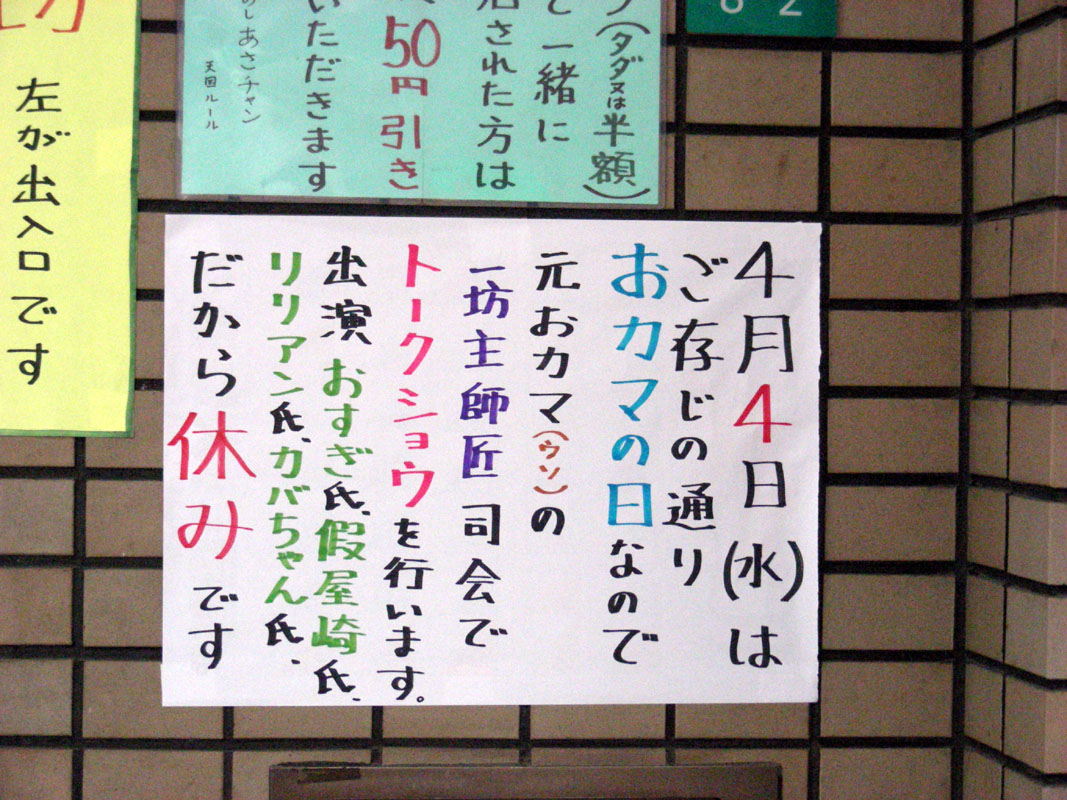 4月4日(水)は
ご存じの通り
おカマの日なので
元おカマ(ウソ)の
一坊主師匠司会で
トークショウを行います。
出演 おすぎ氏、假屋崎氏、
リリアン氏、カバちゃん氏、
だから休みです
(タダ又は半額)
一緒に
された方は
50円引き
いただきます
のしあさチャン
天国ルール
左が出入口です
8 2